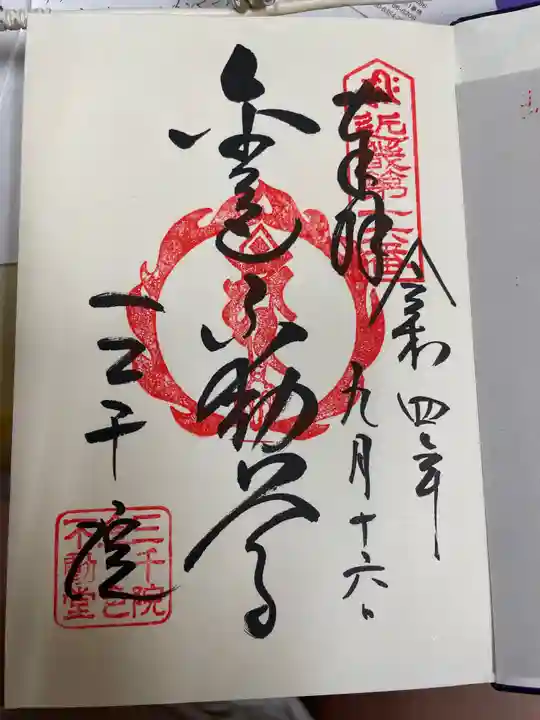 近畿第十六番
奉拝
令和四年
九月十六日
金色不動尊
三千院
三千院
金色
不動堂